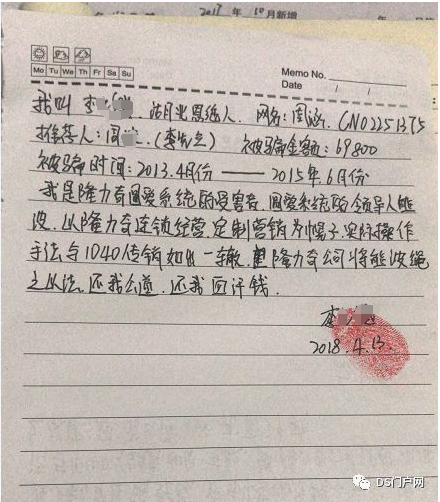 2017 年 10月新增
Memo No.
Mo Tu We Th Fr Sa Su
Date / /
我叫 李 湖北恩施人. 网名:周 CN02251375
推荐人:周 (李先兰) 被骗金额:69800
被骗时间:2013.4月份 —— 2015年.6月份
我是隆力奇圆爱系统的受害者.圆爱系统的领导人熊
波.以隆力奇连锁经营.定制营销为幌子.实际操作
手法与1040传销如出一辙. 隆力奇公司将熊波绳
之以法.还我公道.还我血汗钱.
李
2018.4.13.
DS门户网